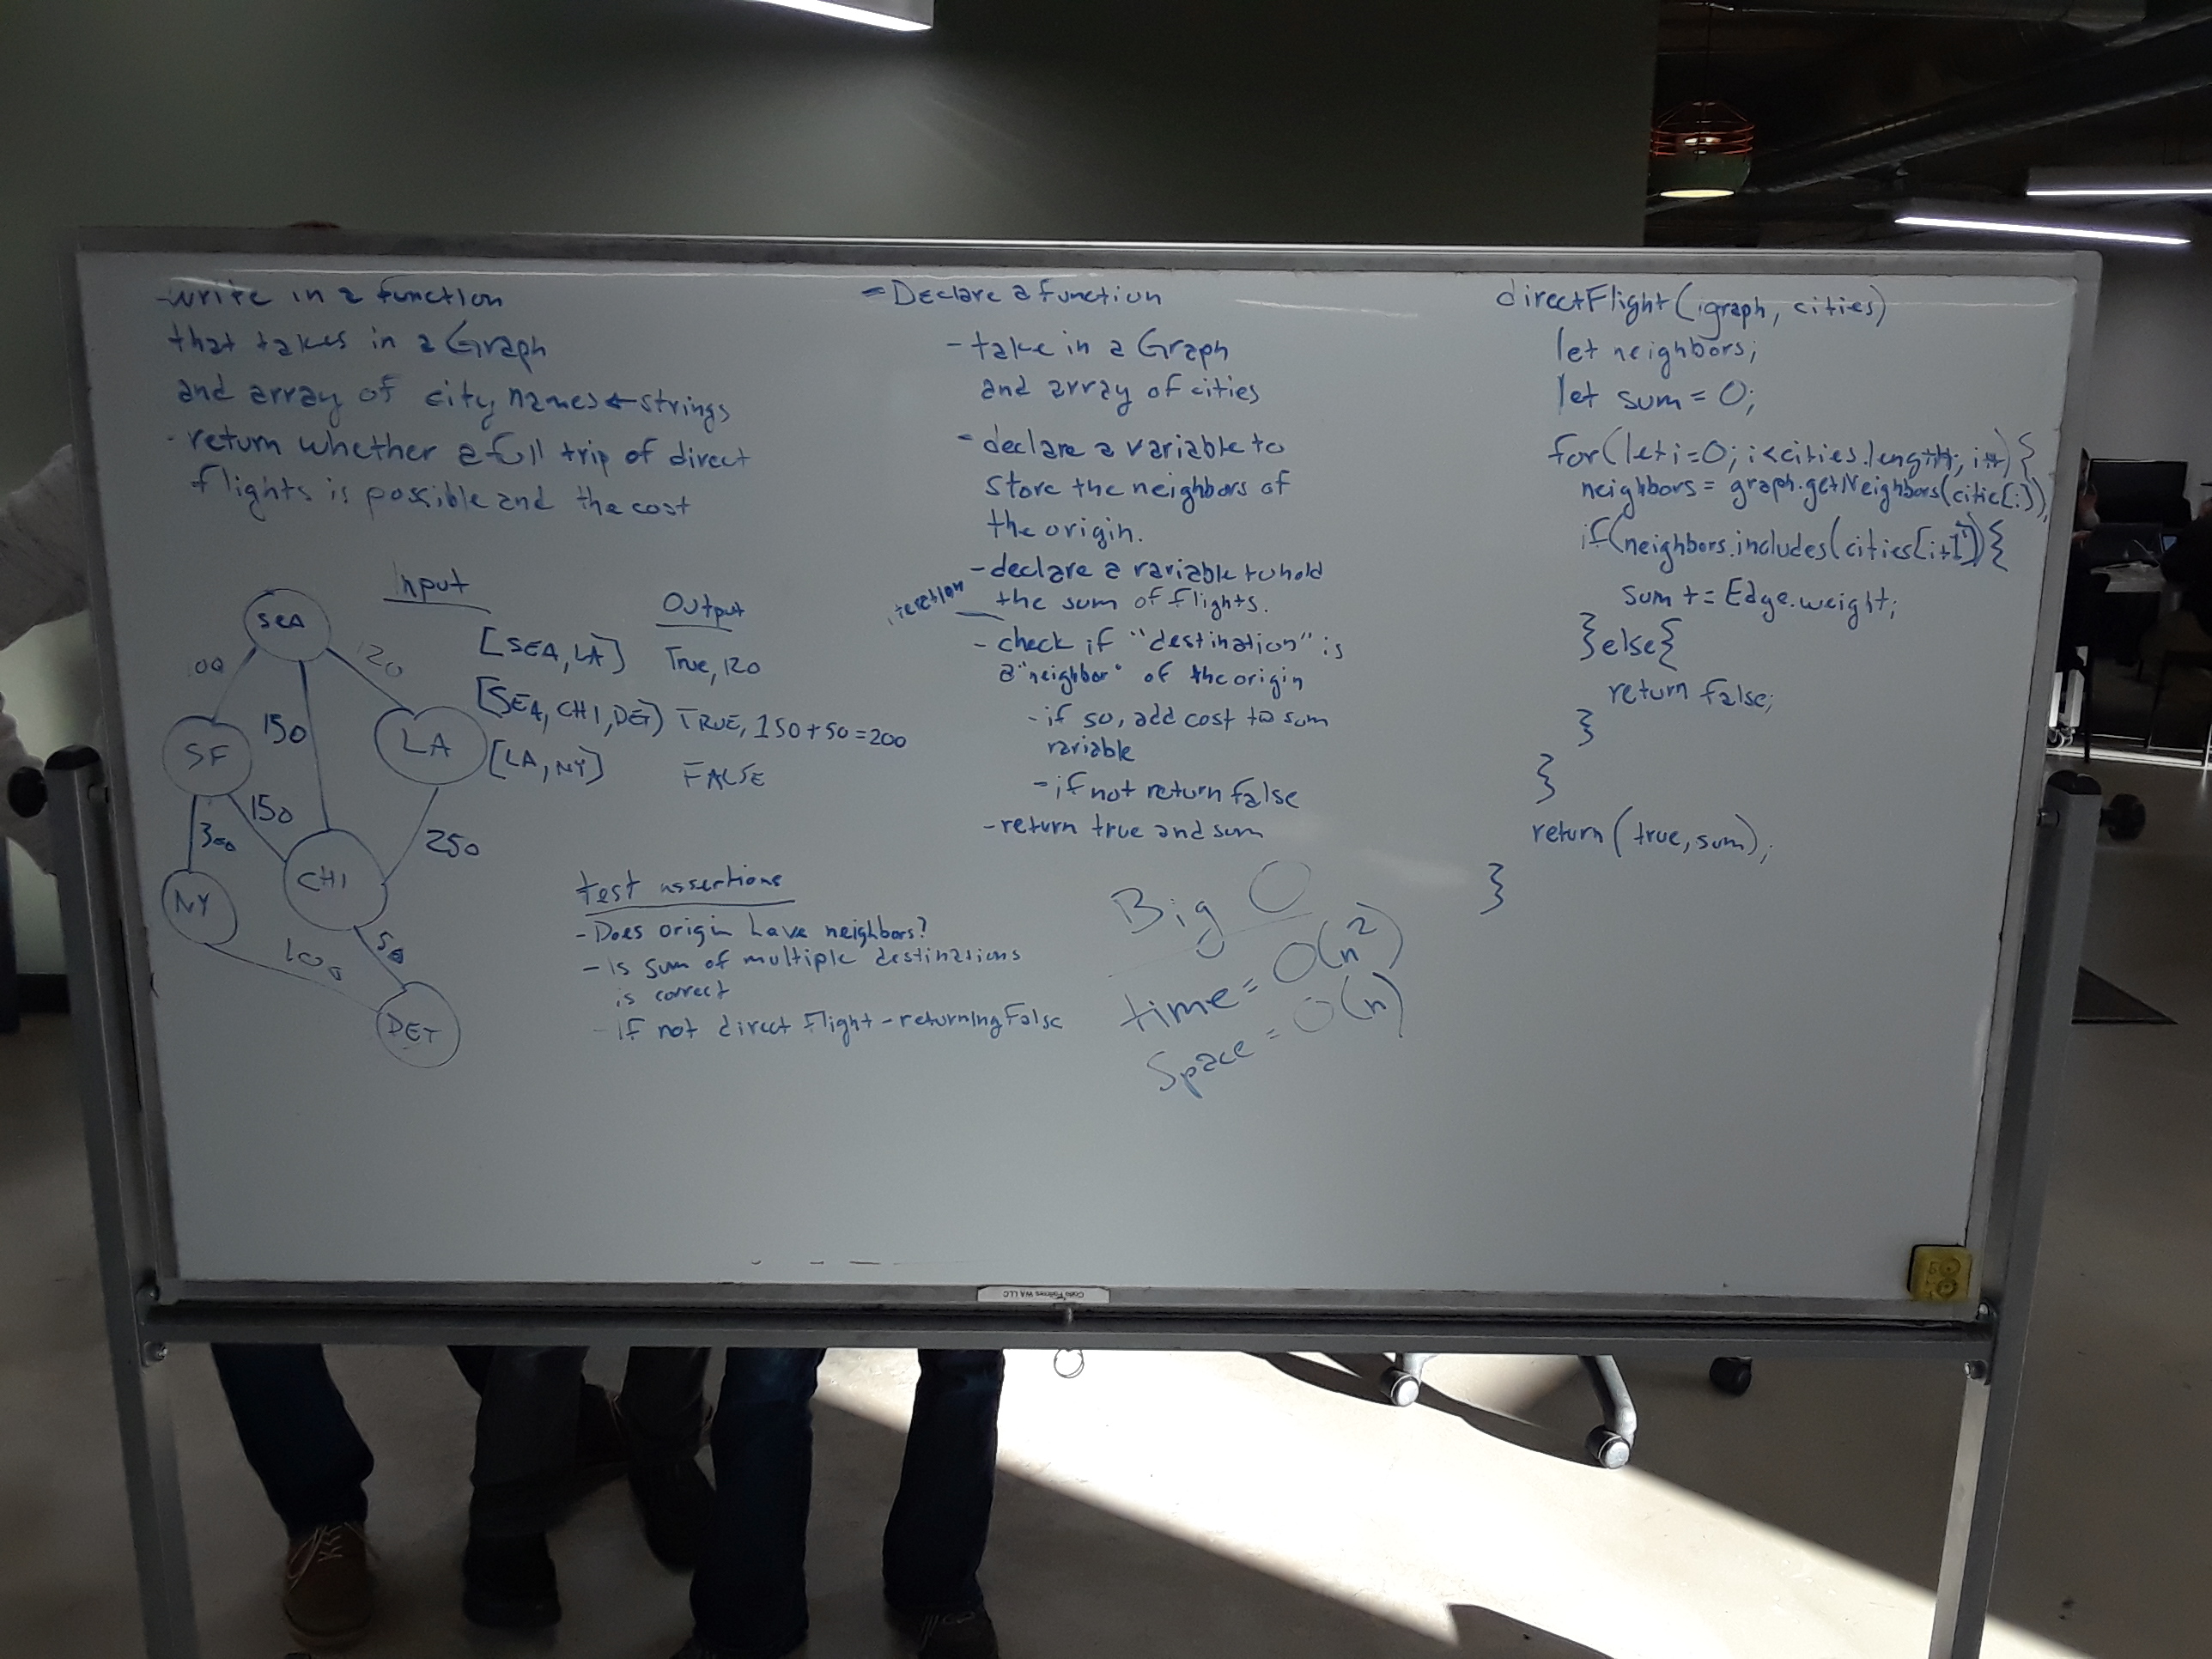 -write in a function
that takes in a Graph
and array of city names ← strings
- return whether a full trip of direct
flights is possible and the cost
Input
Output
[SEA, LA] True, 120
[SEA, CHI, DET] TRUE, 150+50=200
[LA, NY] FALSE
SEA
00
120
150
SF
LA
150
300
250
NY
CHI
100
50
DET
test assertions
- Does origin have neighbors?
- is sum of multiple destinations
is correct
- if not direct flight - returning False
- Declare a function
- take in a Graph
and array of cities
- declare a variable to
store the neighbors of
the origin.
- declare a variable to hold
the sum of flights.
- check if "destination" is
a "neighbor" of the origin
- if so, add cost to sum
variable
- if not return false
- return true and sum
Big O
time = O(n²)
Space = O(n)
directFlight(graph, cities)
let neighbors;
let sum = 0;
for(let i=0; i<cities.length; i++){
neighbors = graph.getNeighbors(citie[i]);
if(neighbors.includes(cities[i+1]){
sum += Edge.weight;
}else{
return false;
}
}
return (true, sum);
}
Code Fellows WA LLC